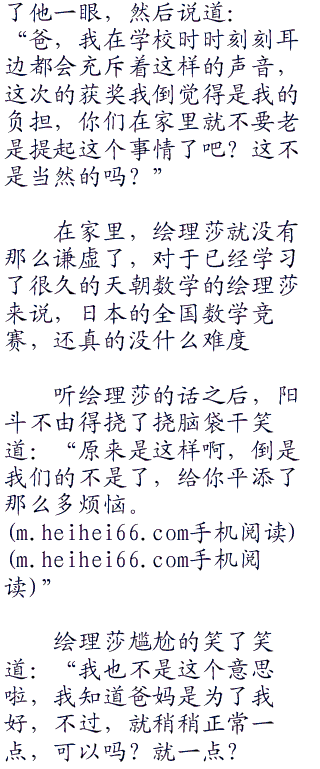 了他一眼，然后说道：
“爸，我在学校时时刻刻耳
边都会充斥着这样的声音，
这次的获奖我倒觉得是我的
负担，你们在家里就不要老
是提起这个事情了吧？这不
是当然的吗？”
在家里，绘理莎就没有
那么谦虚了，对于已经学习
了很久的天朝数学的绘理莎
来说，日本的全国数学竞
赛，还真的没什么难度
听绘理莎的话之后，阳
斗不由得挠了挠脑袋干笑
道：“原来是这样啊，倒是
我们的不是了，给你平添了
那么多烦恼。
(m.heihei66.com手机阅读)
(m.heihei66.com手机阅
读)”
绘理莎尴尬的笑了笑
道：“我也不是这个意思
啦，我知道爸妈是为了我
好，不过，就稍稍正常一
点，可以吗？就一点？